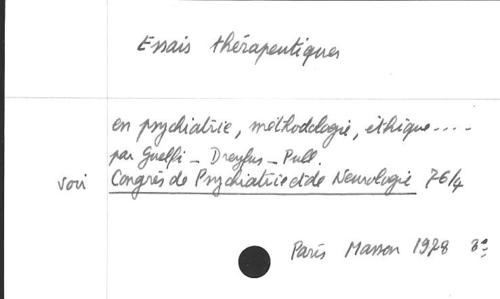 Essais thérapeutiques
en psychiatrie, méthodologie, éthique....
par Guelfi - Dreyfus - Pull.
voir Congrès de Psychiatrie et de Neurologie 76/4
Paris Masson 1978 8°